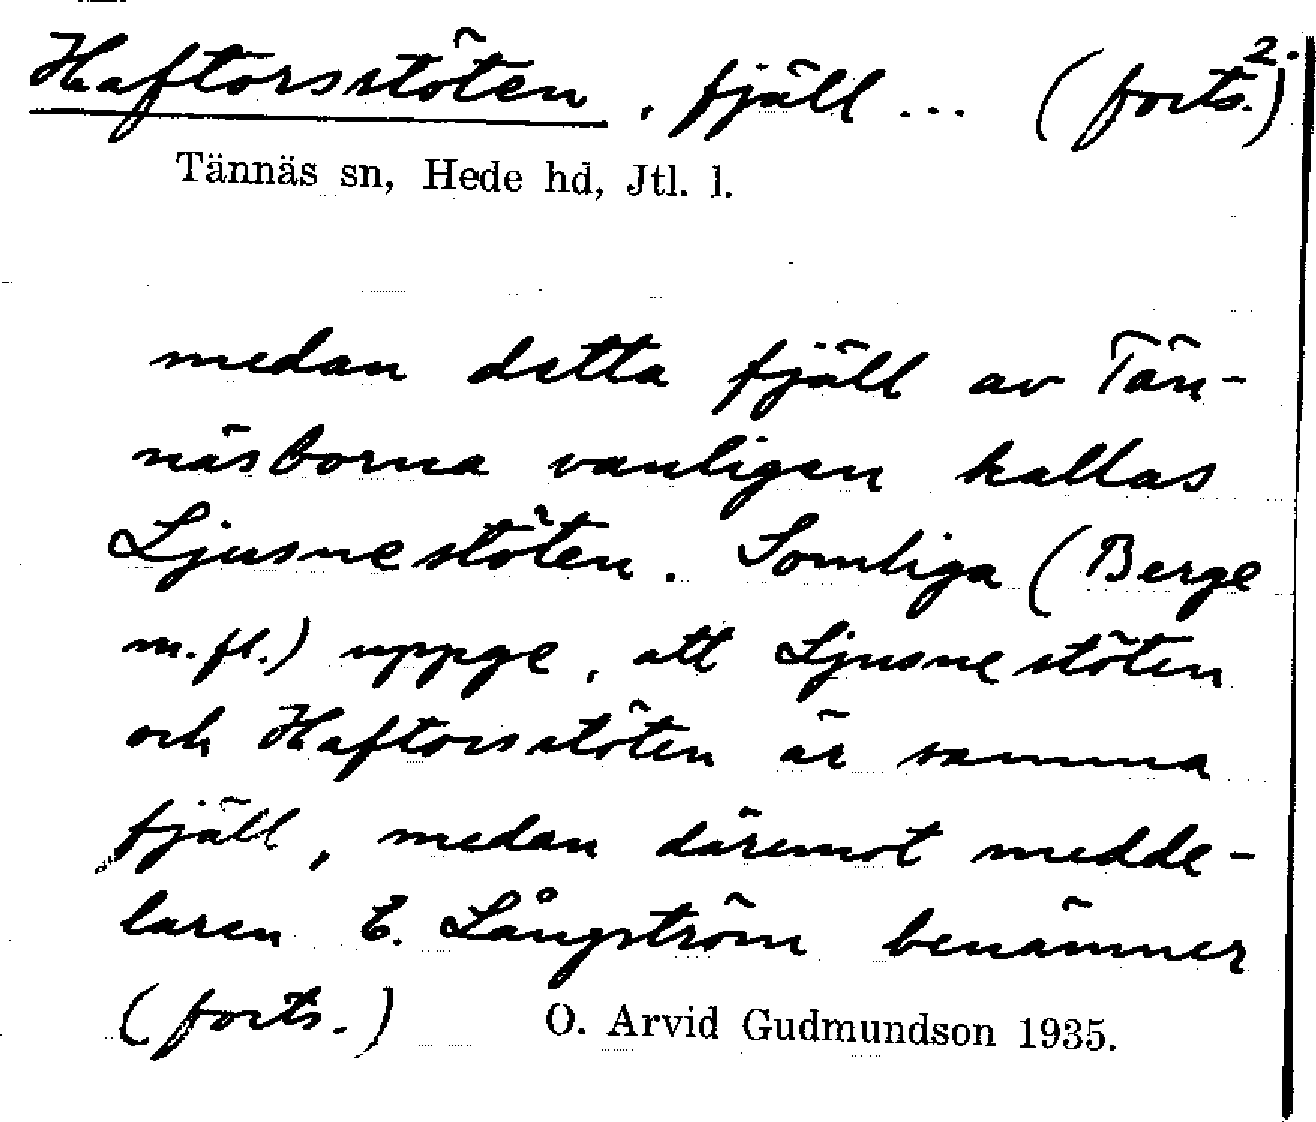 2.
Haftorsstöten, fjäll ... (forts.)
Tännäs sn, Hede hd, Jtl. l.
medan detta fjäll av Tän-
näsborna vanligen kallas
Ljusnestöten. Somliga (Berge
m.fl.) uppge, att Ljusnestöten
och Haftorsstöten är samma
fjäll, medan däremot medde-
laren E. Långström benämner
(forts.) O. Arvid Gudmundson 1935.